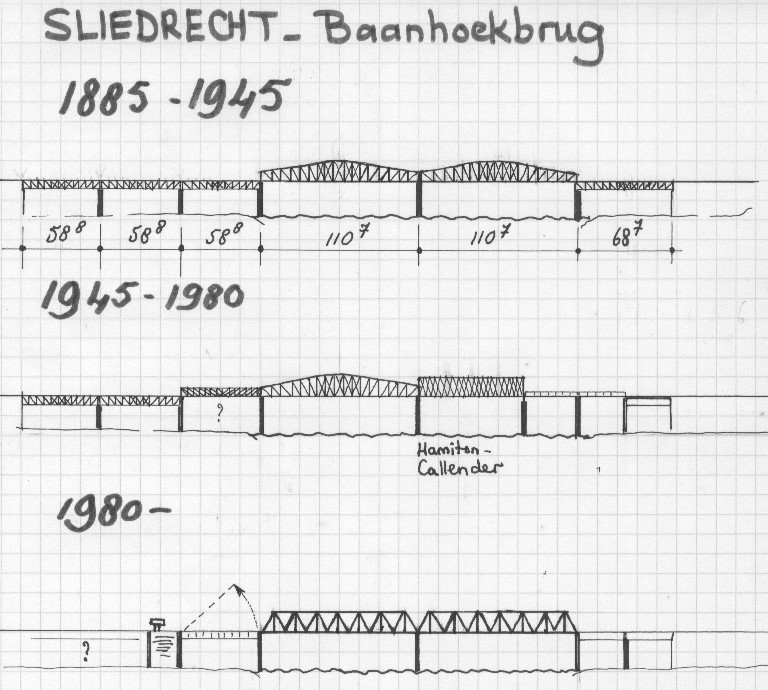 SLIEDRECHT - Baanhoekbrug
1885 - 1945
58⁸ 58⁸ 58⁸ 110⁷ 110⁷ 68⁷
1945 - 1980
?
Hamilton-
Callender
1980 -
?